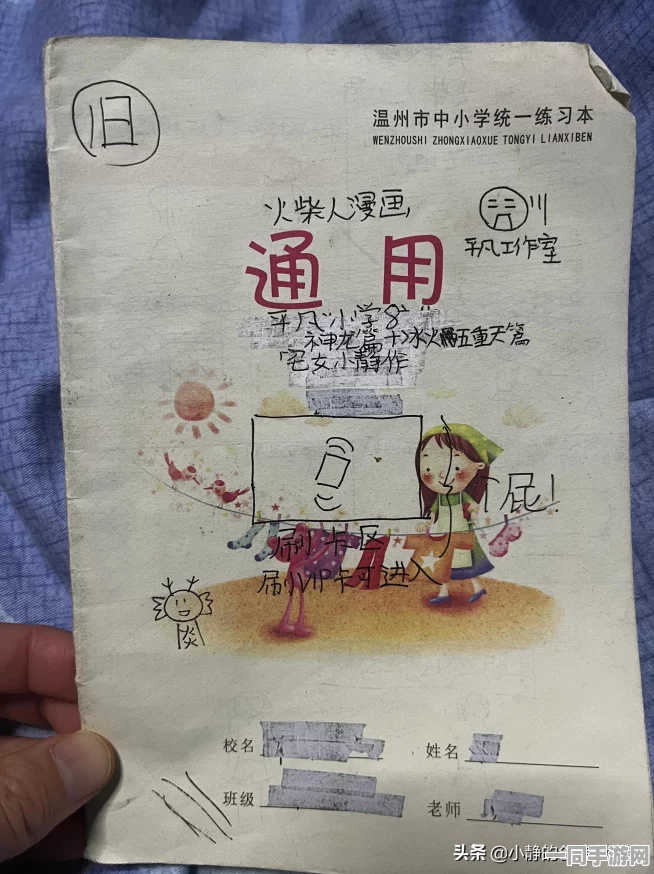 旧
温州市中小学统一练习本
WENZHOUSHI ZHONGXIAOXUE TONGYI LIANXIBEN
火柴人漫画
平凡工作室
通用
平凡小学8
神龙篇+冰火五重天篇
宅女小静作
个屁!
刷卡区
刷VIP卡可进入
校名
姓名
班级
老师
头条 @小静的
一同手游网